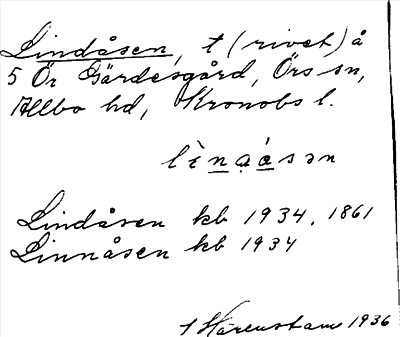 Lindåsen, t (rivet) å
5 Ör Gärdesgård, Örs sn,
Allbo hd, Kronobs l.
Lindåsen kb 1934, 1861
Linnåsen kb 1934
Härenstam 1936